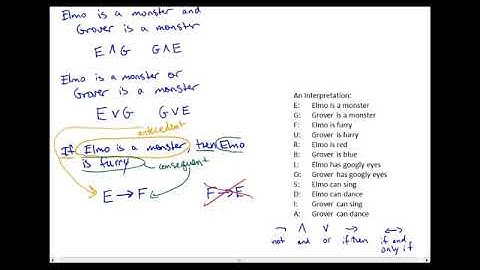 Elmo is a monster and
Grover is a monster
E ∧ G G ∧ E
Elmo is a monster or
Grover is a monster
E ∨ G G ∨ E
antecedent
If Elmo is a monster, then Elmo
is furry
consequent
E → F F → E
An Interpretation:
E: Elmo is a monster
G: Grover is a monster
F: Elmo is furry
U: Grover is furry
R: Elmo is red
B: Grover is blue
L: Elmo has googly eyes
O: Grover has googly eyes
S: Elmo can sing
D: Elmo can dance
I: Grover can sing
A: Grover can dance
¬ ∧ ∨ → ↔
not and or if then if and
only if